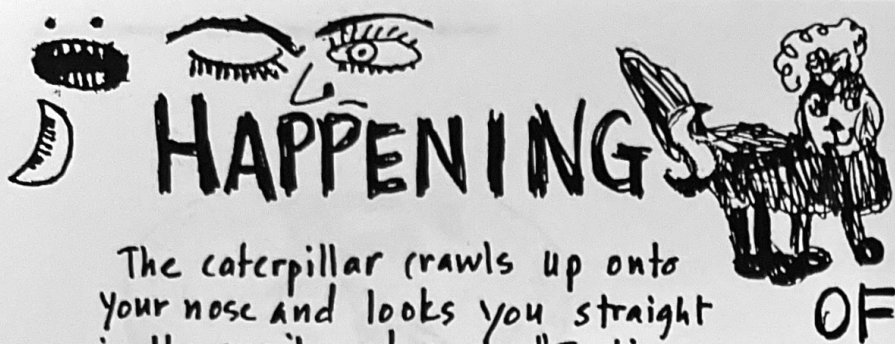 HAPPENINGS
The caterpillar crawls up onto
your nose and looks you straight
OF